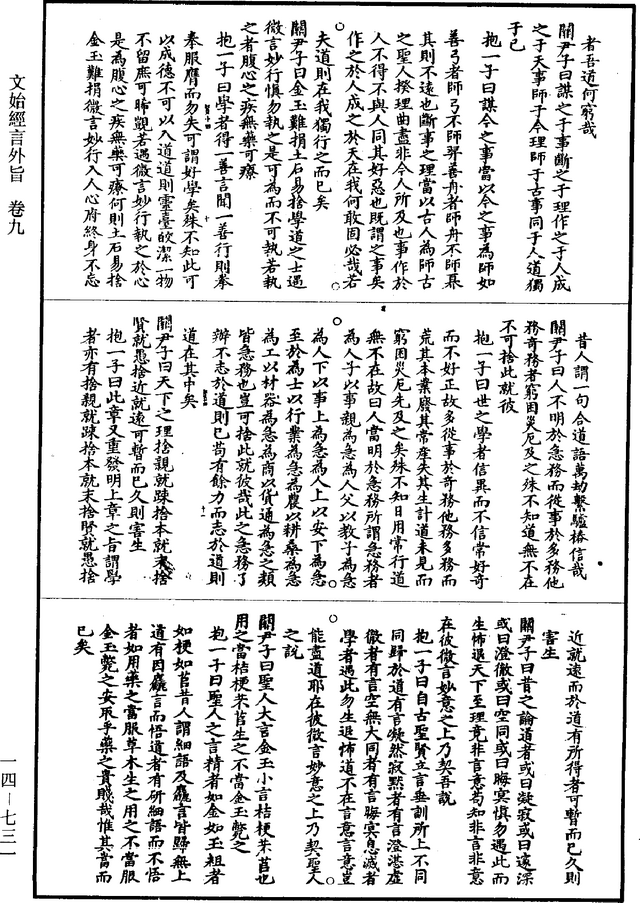 文始經言外旨　卷九
者吾道何窮哉
關尹子曰謀之于事斷之于理作之于人成
之于天事師于今理師于古事同于人道獨
于己
抱一子曰謀今之事當以今之事為師如
善弓者師弓不師羿善舟者師舟不師奡
其則不遠也斷事之理當以古人為師古
之聖人揆理曲盡非今人所及也事作於
人不得不與人同其好惡也既謂之事矣
作之於人成之於天在我何敢固必哉若
夫道則在我獨行之而已矣
關尹子曰金玉難捐土石易捨學道之士遇
微言妙行慎勿執之是可為而不可執若執
之者腹心之疾無藥可療
抱一子曰學者得一善言聞一善行則拳
拳服膺而勿失可謂好學矣殊不知此可
以成德不可以入道道則靈臺皎潔一物
不留庶可晞覬若遇微言妙行執之於心
是為腹心之疾無藥可療何則土石易捨
金玉難捐微言妙行入人心府終身不忘
昔人謂一句合道語萬劫繫驢樁信哉
關尹子曰人不明於急務而從事於多務他
務奇務者窮困災厄及之殊不知道無不在
不可捨此就彼
抱一子曰世之學者信異而不信常好奇
而不好正故多從事於奇務他務多務而
荒其本業廢其常產失其生計道未見而
窮困災厄先及之矣殊不知日用常行道
無不在故曰人當明於急務所謂急務者
為人子以事親為急為人父以教子為急
為人下以事上為急為人上以安下為急
至於為士以行業為急為農以耕桑為急
為工以材器為急為商以貨通為急之類
皆急務也豈可捨此就彼哉此之急務了
辦不志於道則已尚有餘力而志於道則
道在其中矣
關尹子曰天下之理捨親就踈捨本就末捨
賢就愚捨近就遠可暫而已久則害生
抱一子曰此章又重發明上章之旨謂學
者亦有捨親就踈捨本就末捨賢就愚捨
近就遠而於道有所得者可暫而已久則
害生
關尹子曰昔之論道者或曰凝寂或曰邃深
或曰澄徹或曰空同或曰晦冥慎勿遇此而
生怖退天下至理竟非言意苟知非言非意
在彼微言妙意之上乃契吾說
抱一子曰自古聖賢立言垂訓所上不同
同歸於道有言凝然寂默者有言澄湛虛
徹者有言空無大同者有言晦冥息滅者
學者遇此勿生退怖道不在言意言意豈
能盡道耶在彼微言妙意之上乃契聖人
之說
關尹子曰聖人大言金玉小言桔梗芣苢也
用之當桔梗芣苢生之不當金玉斃之
抱一子曰聖人之言精者如金如玉粗者
如梗如苢昔人謂細語及麤言皆歸無上
道有因麤言而悟道者有研細語而不悟
者如用藥之當服草木生之用之不當服
金玉斃之安取乎藥之貴賤哉惟其當而
已矣
一四－七三一